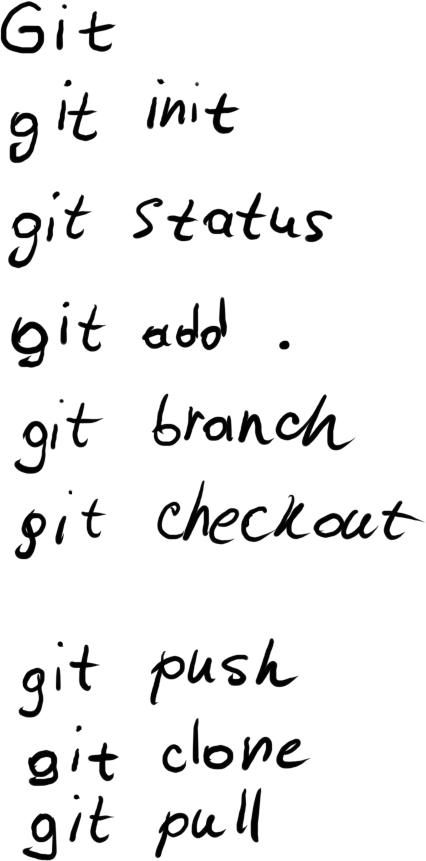 Git
git init
git status
git add .
git branch
git checkout
git push
git clone
git pull